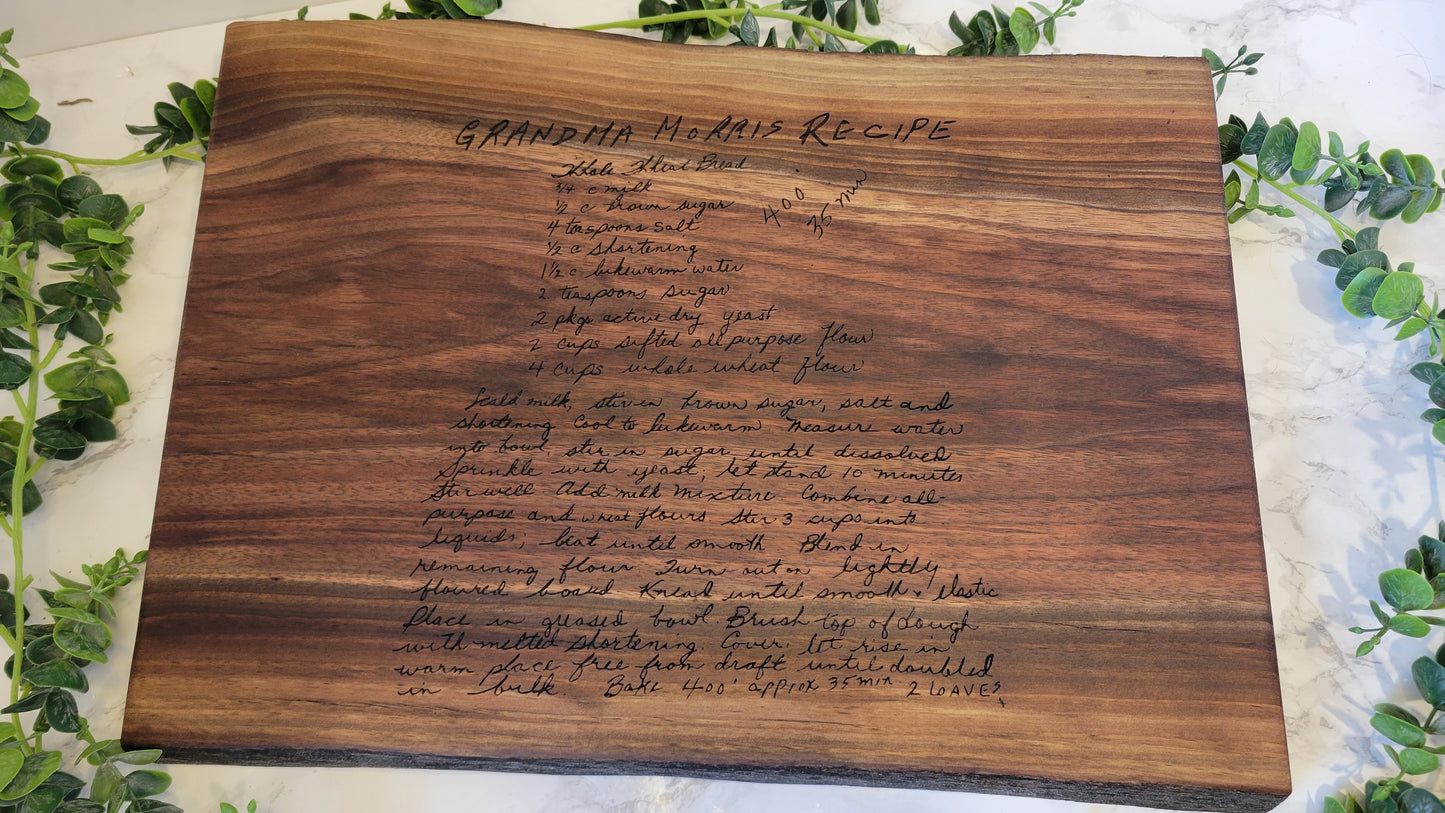 GRANDMA MORRIS RECIPE
Whole Wheat Bread
3/4 c milk
1/2 c brown sugar
400°
35 min
4 teaspoons salt
1/2 c shortening
1 1/2 c lukewarm water
2 teaspoons sugar
2 pkgs active dry yeast
2 cups sifted all purpose flour
4 cups whole wheat flour
Scald milk, stir in brown sugar, salt and
shortening Cool to lukewarm Measure water
into bowl, stir in sugar until dissolved
Sprinkle with yeast; let stand 10 minutes
Stir well Add milk mixture Combine all-
purpose and wheat flours Stir 3 cups into
liquids; beat until smooth Blend in
remaining flour Turn out on lightly
floured board Knead until smooth & elastic
Place in greased bowl. Brush top of dough
with melted shortening. Cover, let rise in
warm place free from draft until doubled
in bulk BAKE 400° approx 35 min 2 LOAVES